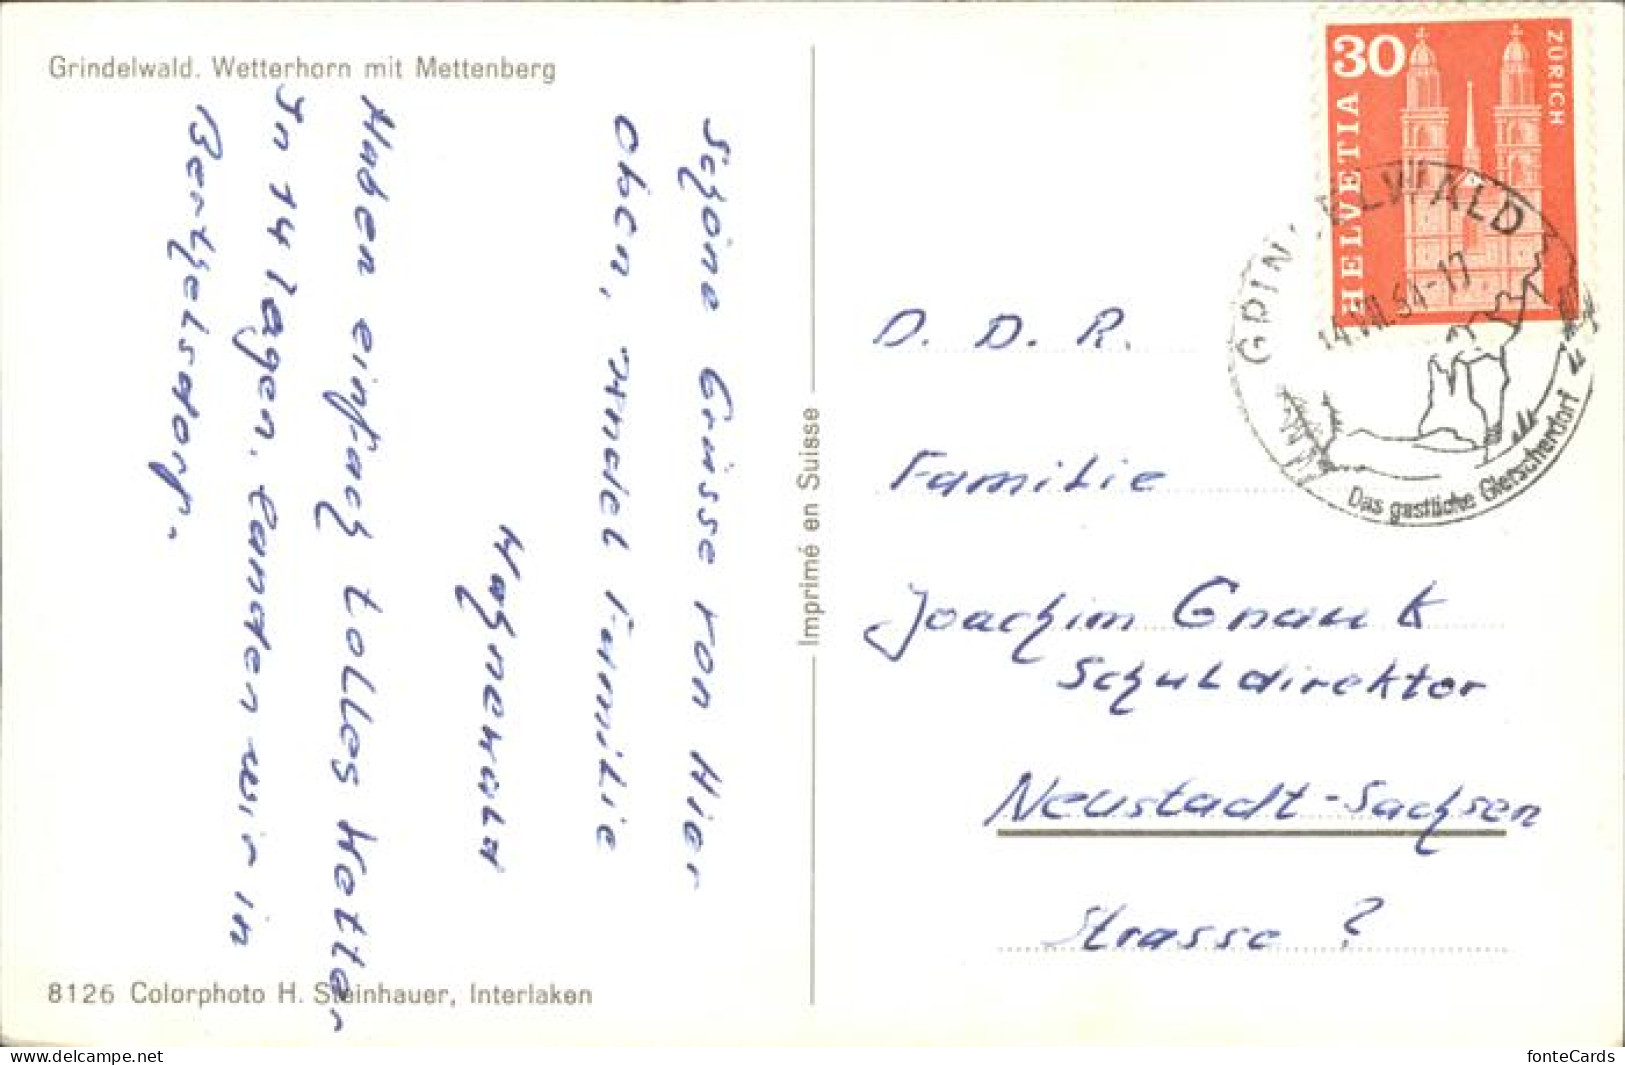 Grindelwald. Wetterhorn mit Mettenberg
Schöne Grüsse von Hier
oben, Familie
Haben einfach tolles Wetter
In 14 Tagen, landen wir in
Berthelsdorf.
8126 Colorphoto H. Steinhauer, Interlaken
Imprimé en Suisse
30
ZÜRICH
HELVETIA
GRINDELWALD
-17
Das gastliche Gletscherdorf
D. D. R.
Familie
Joachim Gnauk
Schuldirektor
Neustadt-Sachsen
Strasse ?
www.delcampe.net
fonteCards